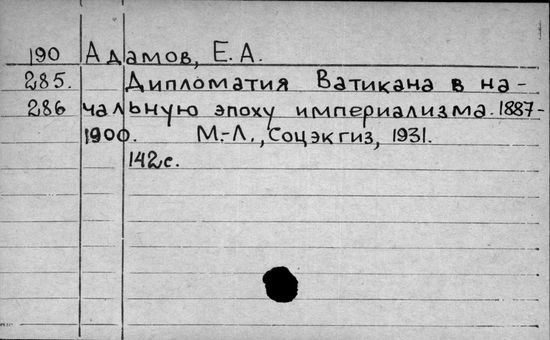 190 Адамов, Е.А.
285. Дипломатия Ватикана в на-
286 чальную эпоху империализма. 1887-
1900. М.-Л., Соцэкгиз, 1931.
142с.